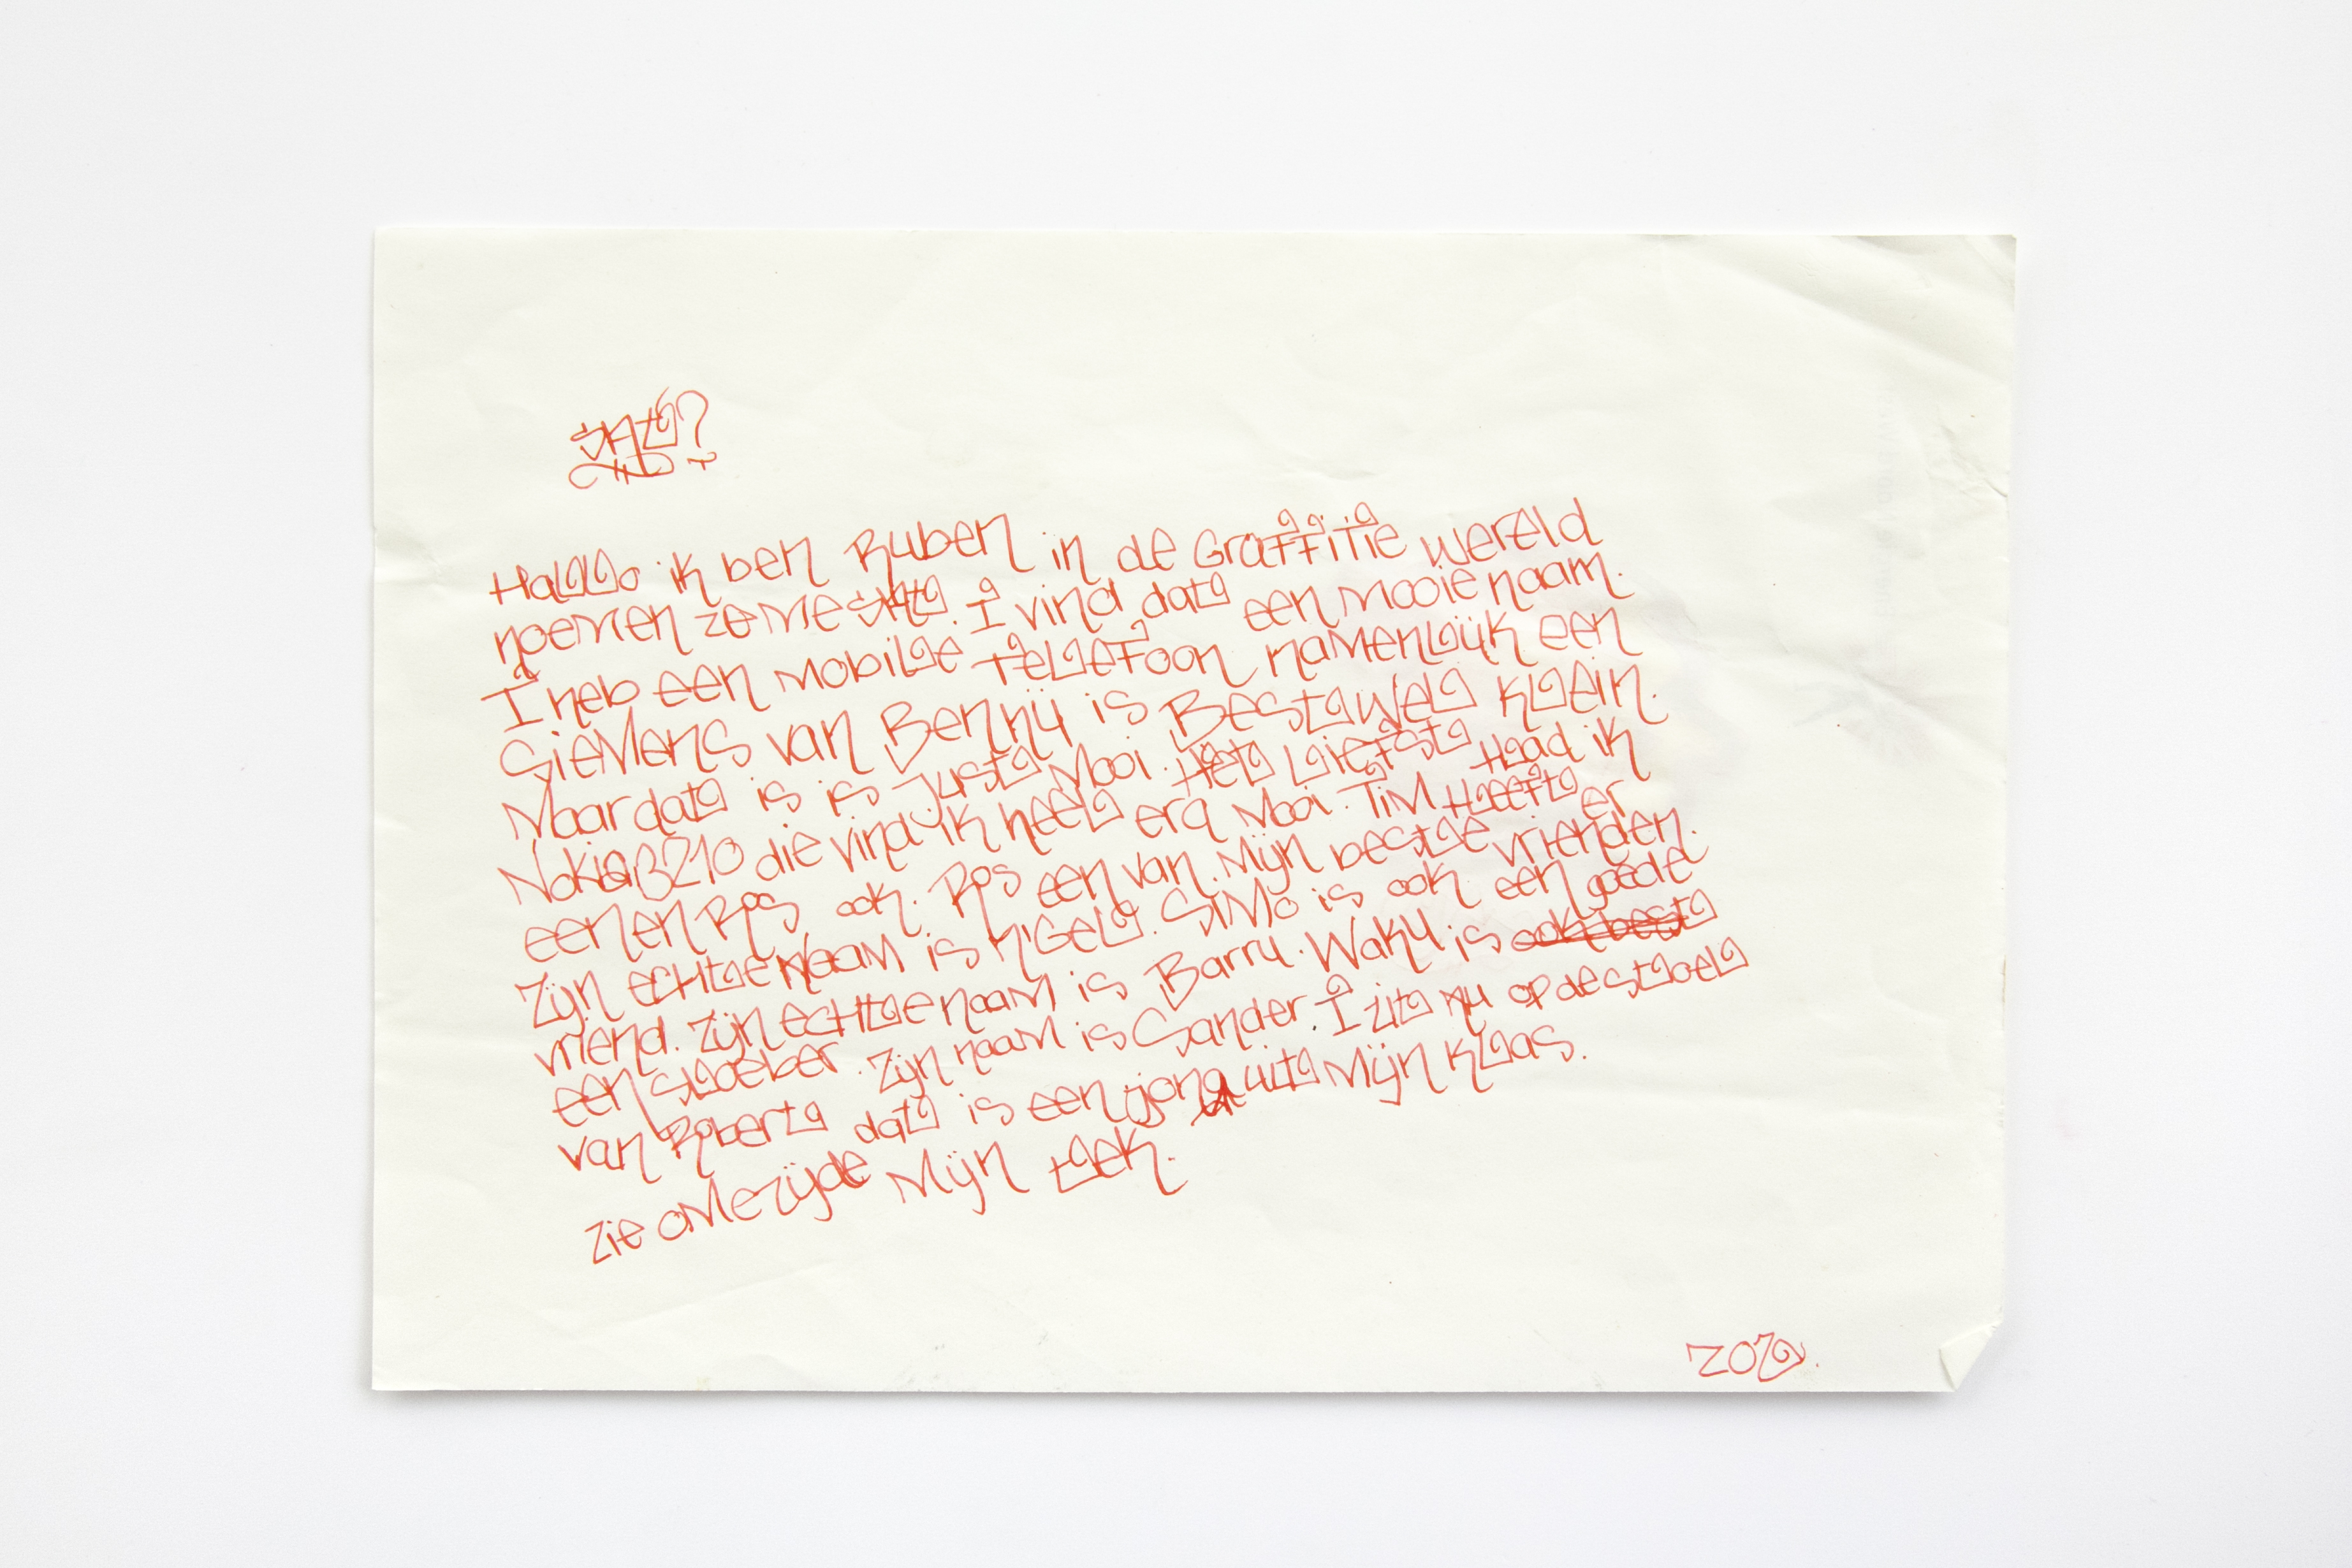 SKT?
Hallo ik ben Ruben in de Graffitie wereld
noemen ze me SKT. I vind dat een mooie naam.
I heb een mobile telefoon namenlijk een
Siemens van Benny is Best wel klein.
Maar dat is is just Mooi. Het liefst Had ik
Nokia 3210 die vind ik heel erg Mooi. TiM Heeft er
een en Ros ook. Ros een van Mijn beste vrienden.
Zijn echte Naam is Nigel. SiMo is ook een goede
vriend. Zijn echte naam is Barry. Waky is ook best
een sloeber. Zijn naam is Sander. I zit nu op de stoel
van Robert dat is een jong uit Mijn klas.
Zie omezijde Mijn tek.
ZOZ.